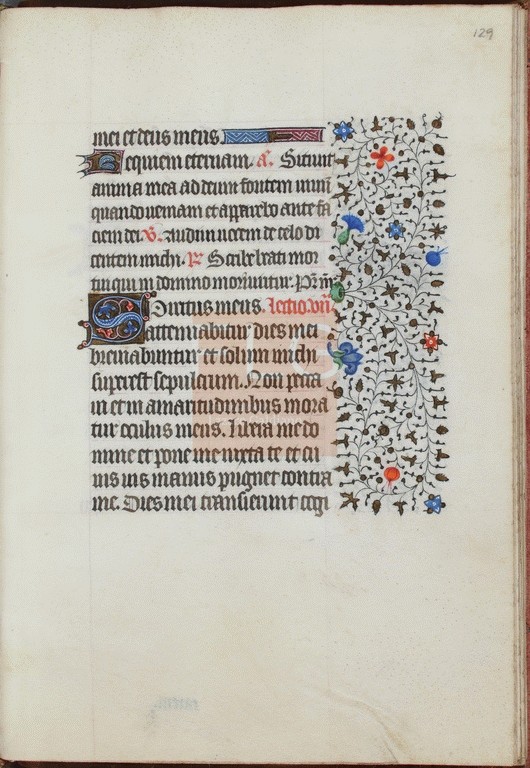 129
mei et deus meus
Requiem eternam. a. Sitivit
anima mea ad deum fontem vivu
quando veniam et apparebo ante fa
ciem dei. v. Audivi vocem de celo di
centem michi. R. Scribe beati mor
tui qui in domino moriuntur. Pr nr
Spiritus meus. Lectio. vii
attenuabitur dies mei
breviabuntur et solum michi
superest sepulcrum. Non pecca
vi et in amaritudinibus mora
tur oculus meus. Libera me do
mine et pone me iuxta te et cu
ius vis manus pugnet contra
me. Dies mei transierunt cogi